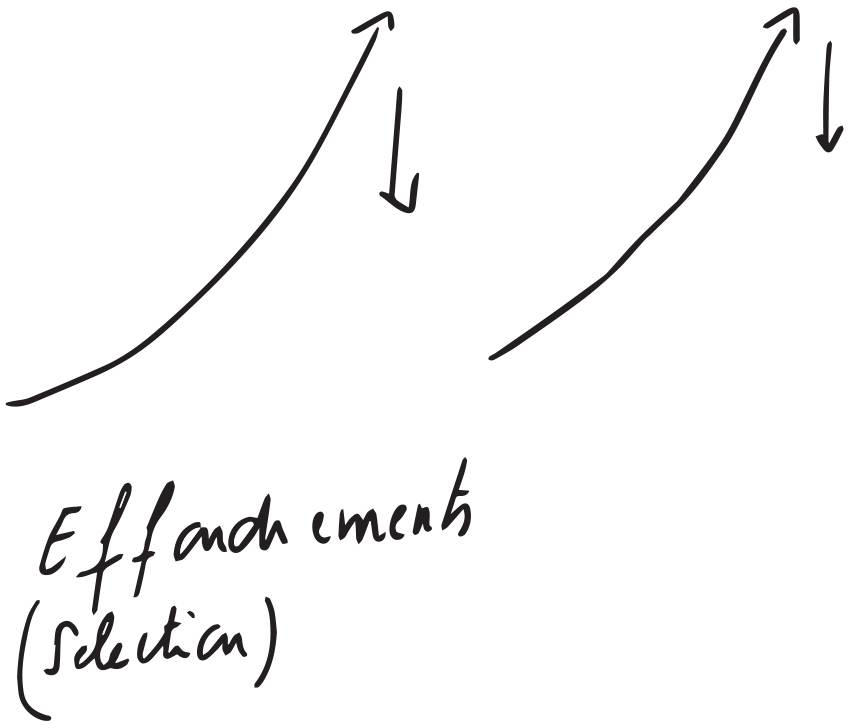 Effondrements
(sélection)